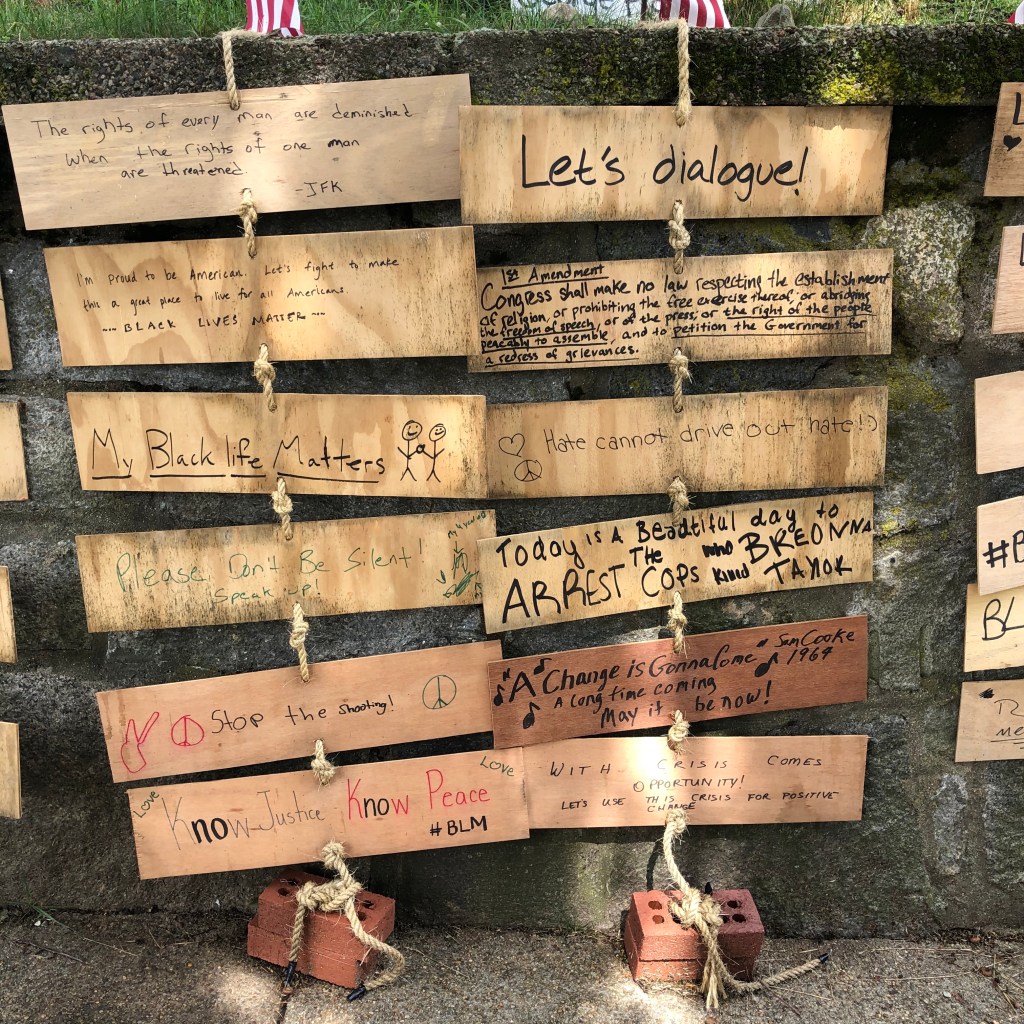 The rights of every man are deminished
when the rights of one man
are threatened.
-JFK
I'm proud to be American. Let's fight to make
this a great place to live for all Americans.
~~ BLACK LIVES MATTER ~~
My Black life Matters
Please Don't Be Silent!
Speak up!
Stop the shooting!
Love
Know Justice Know Peace
Love
#BLM
Let's dialogue!
1st Amendment
Congress shall make no law respecting the establishment
of religion, or prohibiting the free exercise thereof, or abridging
the freedom of speech, or of the press; or the right of the people
peacably to assemble, and to petition the Government for
a redress of grievances.
Hate cannot drive out hate!:)
Today is A Beautiful day to
ARREST THE COPS who killed BREONNA
TAYLOR
"A Change is Gonna Come" Sam Cooke
1964
A long time coming
May it be now!
WITH CRISIS COMES
OPPORTUNITY!
LET'S USE THIS CRISIS FOR POSITIVE
CHANGE
#B
BL